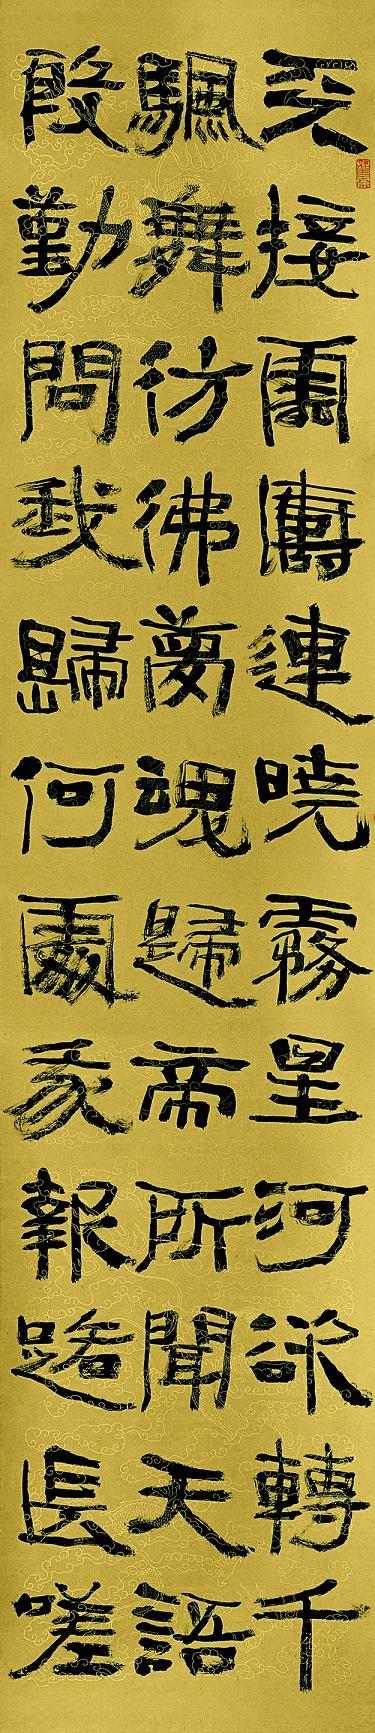 天接雲濤連曉霧星河欲轉千
颿舞彷彿夢魂歸帝所聞天語
殷勤問我歸何處我報路長嗟